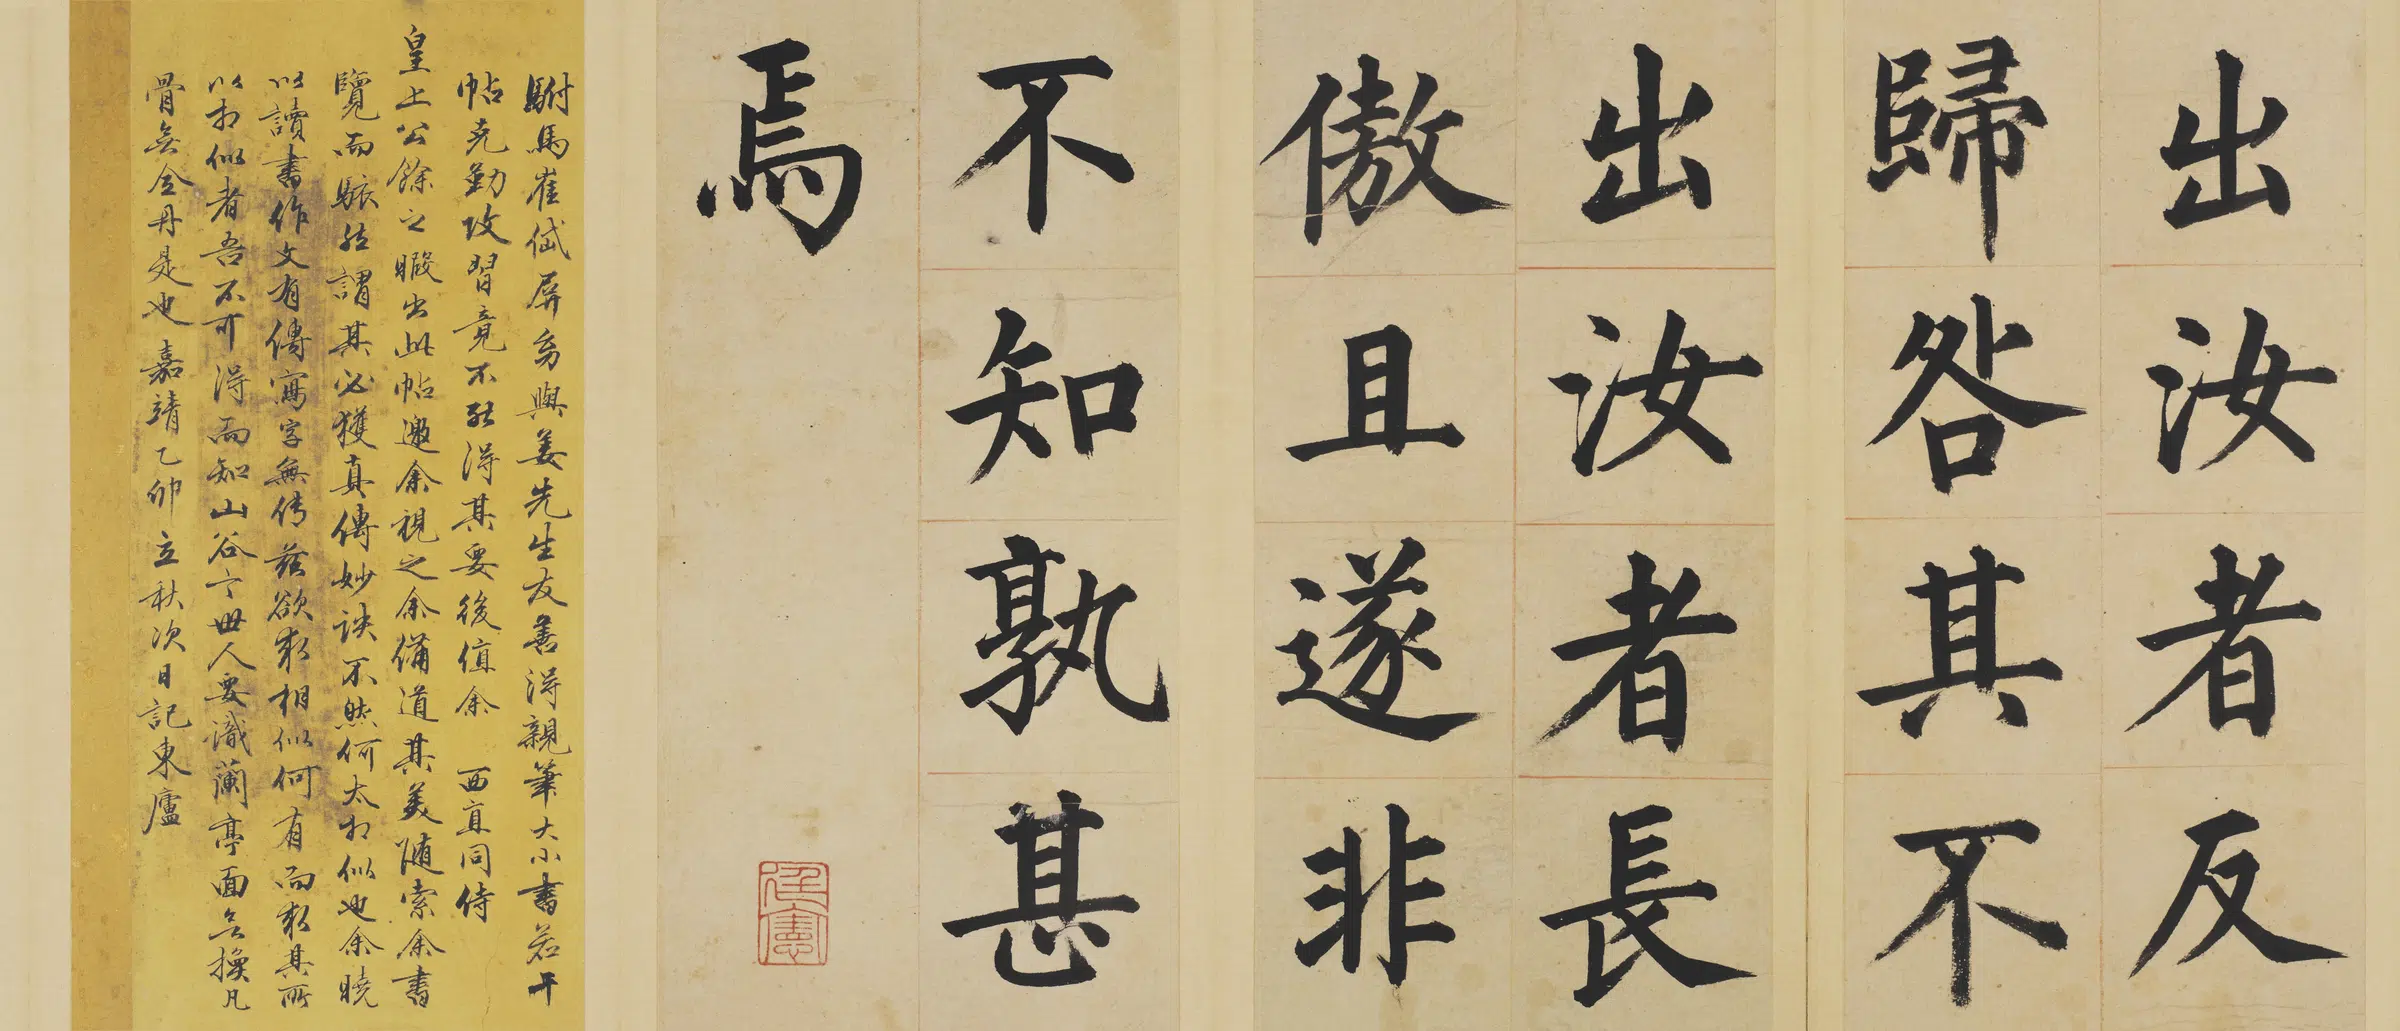 出汝者反
歸咎其不
出汝者長
傲且遂非
不知孰甚
焉
駙馬崔岱屏系與姜先生友善得親筆大小書若干
帖克勤攻習竟不能得其要後值余 西直同侍
皇上公餘之暇出此帖邀余視之余備道其美随索余書
覽而駭然謂其必獲真傳妙訣不然何太相似也余曉
以讀書作文有傳寫字無传茲欲求相似何有而求其所
以相似者吾不可得而知山谷言世人要識蘭亭面無換凡
骨無金丹是也 嘉靖乙卯立秋次日記東廬
廷憲